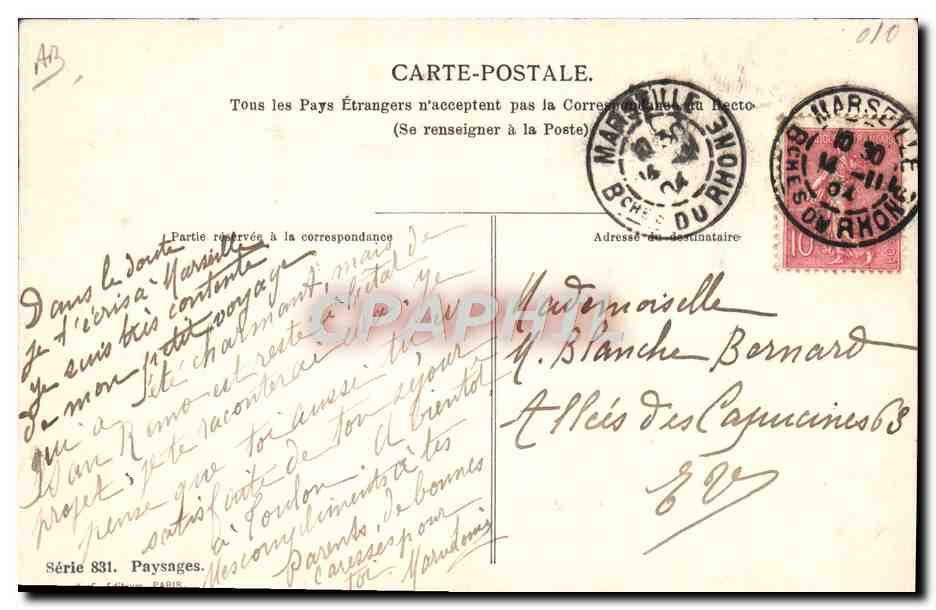 AB
010
CARTE-POSTALE.
Tous les Pays Étrangers n'acceptent pas la Correspondance du Recto
(Se renseigner à la Poste)
MARSEILLE
10 30
14 -11
04
BCHES DU RHONE
MARSEILLE
10 30
14 -11
04
BCHES DU RHONE
10
Partie réservée à la correspondance
Adresse du destinataire
Dans le doute
je t'écris à Marseille
Je suis très contente
de mon petit voyage
qui a été charmant, mais de
San Remo est resté à l'état de
projet; je te raconterai ça. Je
pense que toi aussi tu as
satisfaite de ton séjour
à Toulon. A bientôt,
Mes compliments à tes
Parents, de bonnes
caresses pour
toi.
Mademoiselle
M. Blanche Bernard
Allées des Capucines 63
EV
CAPHIL
Série 831. Paysages.
Editeurs PARIS